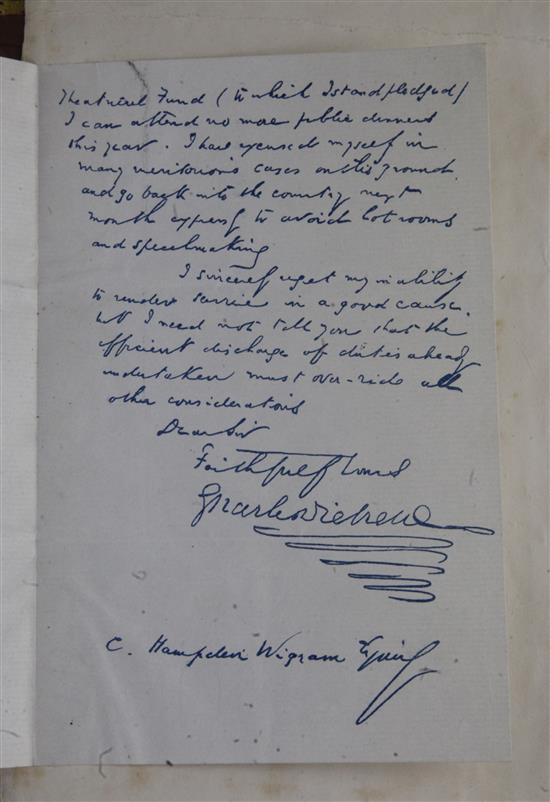 Theatrical Fund (to which I stand pledged)
I can attend no more public dinners
this year. I have excused myself in
many meritorious cases on this ground.
and go back into the country next
month expressly to avoid hot rooms
and speechmaking
I sincerely regret my inability
to render service in a good cause.
but I need not tell you that the
efficient discharge of duties already
undertaken must over-ride all
other considerations
Dear Sir
Faithfully Yours
Charles Dickens
C. Hampden Wigram Esquire